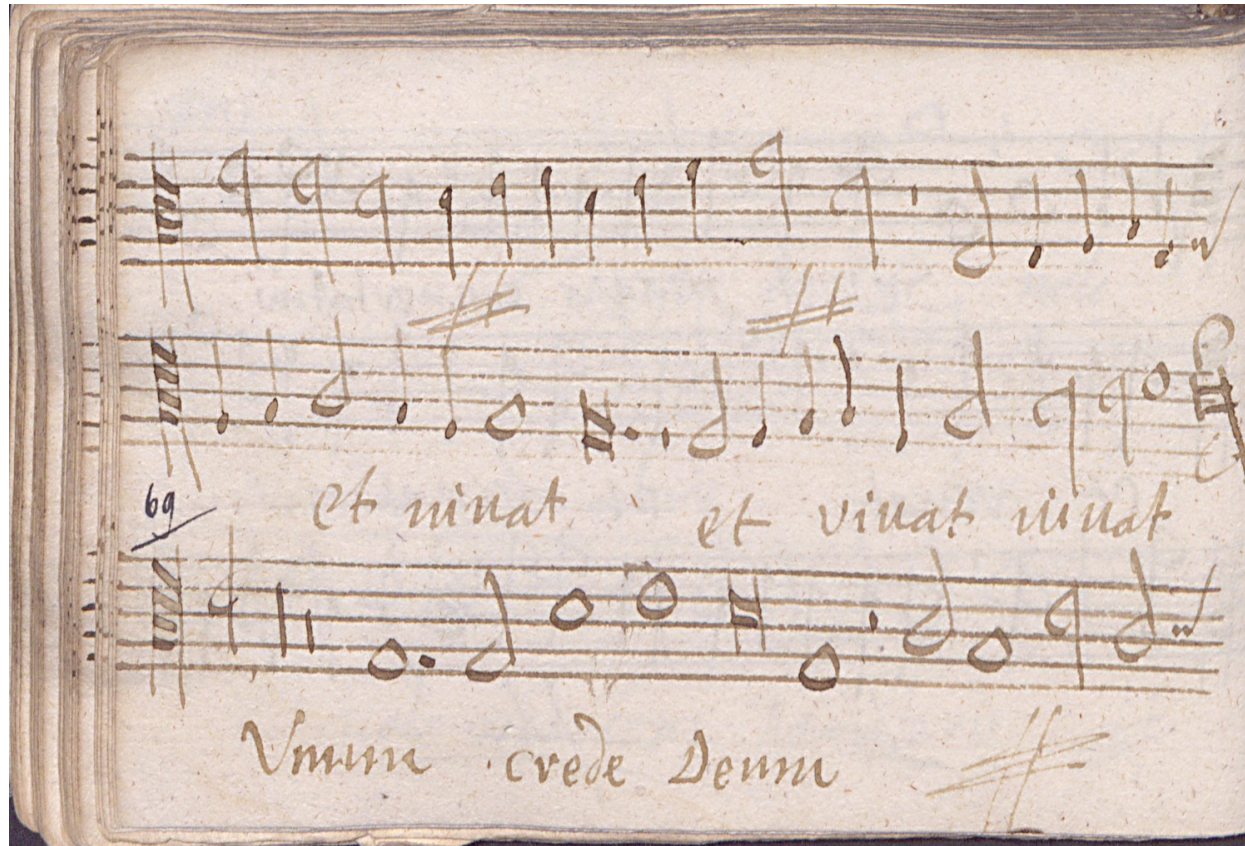 et uiuat et viuat uiuat
69
Vnum crede Deum